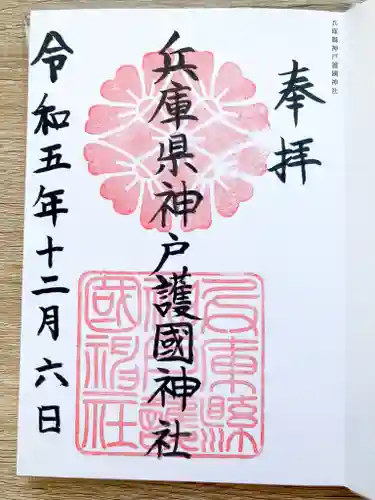 兵庫縣神戸護國神社
奉拝
兵庫県神戸護國神社
兵庫縣
神戸護
國神社
令和五年十二月六日